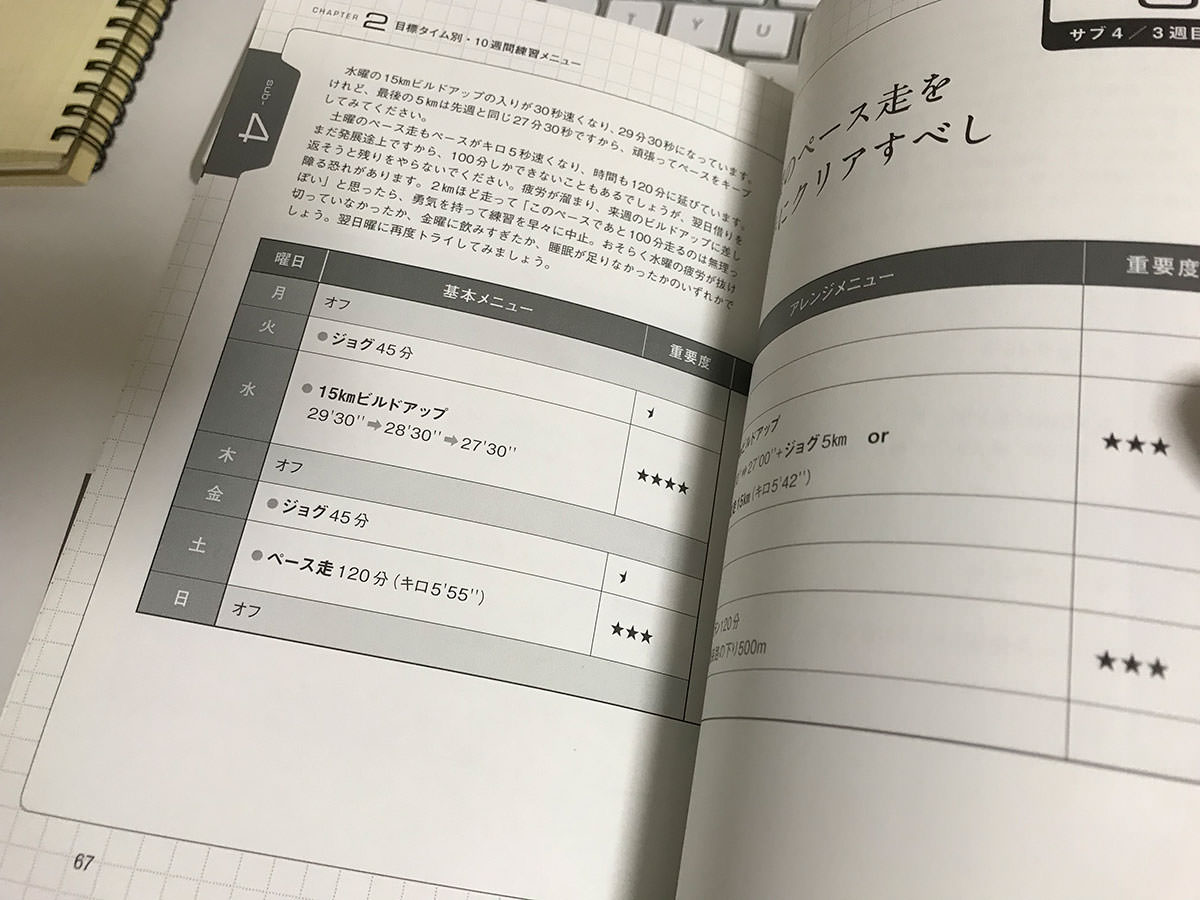 T Y U
CHAPTER 2 目標タイム別・10週間練習メニュー
sub-4
水曜の15kmビルドアップの入りが30秒速くなり、29分30秒になっています。
けれど、最後の5kmは先週と同じ27分30秒ですから、頑張ってペースをキープ
してみてください。
土曜のペース走もペースがキロ5秒速くなり、時間も120分に延びています。
まだ発展途上ですから、100分しかできないこともあるでしょうが、翌日借りを
返そうと残りをやらないでください。疲労が溜まり、来週のビルドアップに差し
障る恐れがあります。2kmほど走って「このペースであと100分走るのは無理っ
ぽい」と思ったら、勇気を持って練習を早々に中止。おそらく水曜の疲労が抜け
切っていなかったか、金曜に飲みすぎたか、睡眠が足りなかったかのいずれかで
しょう。翌日曜に再度トライしてみましょう。
曜日 基本メニュー 重要度
月 オフ
火 ●ジョグ45分
水 ●15kmビルドアップ ★★★★
29'30''➡28'30''➡27'30''
木 オフ
金 ●ジョグ45分
土 ●ペース走120分(キロ5'55'') ★★★
日 オフ
67
サブ4/3週目
のペース走を
にクリアすべし
アレンジメニュー 重要度
ビルドアップ
27'00''+ジョグ5km or ★★★
15km(キロ5'42'')
120分
の下り500m ★★★